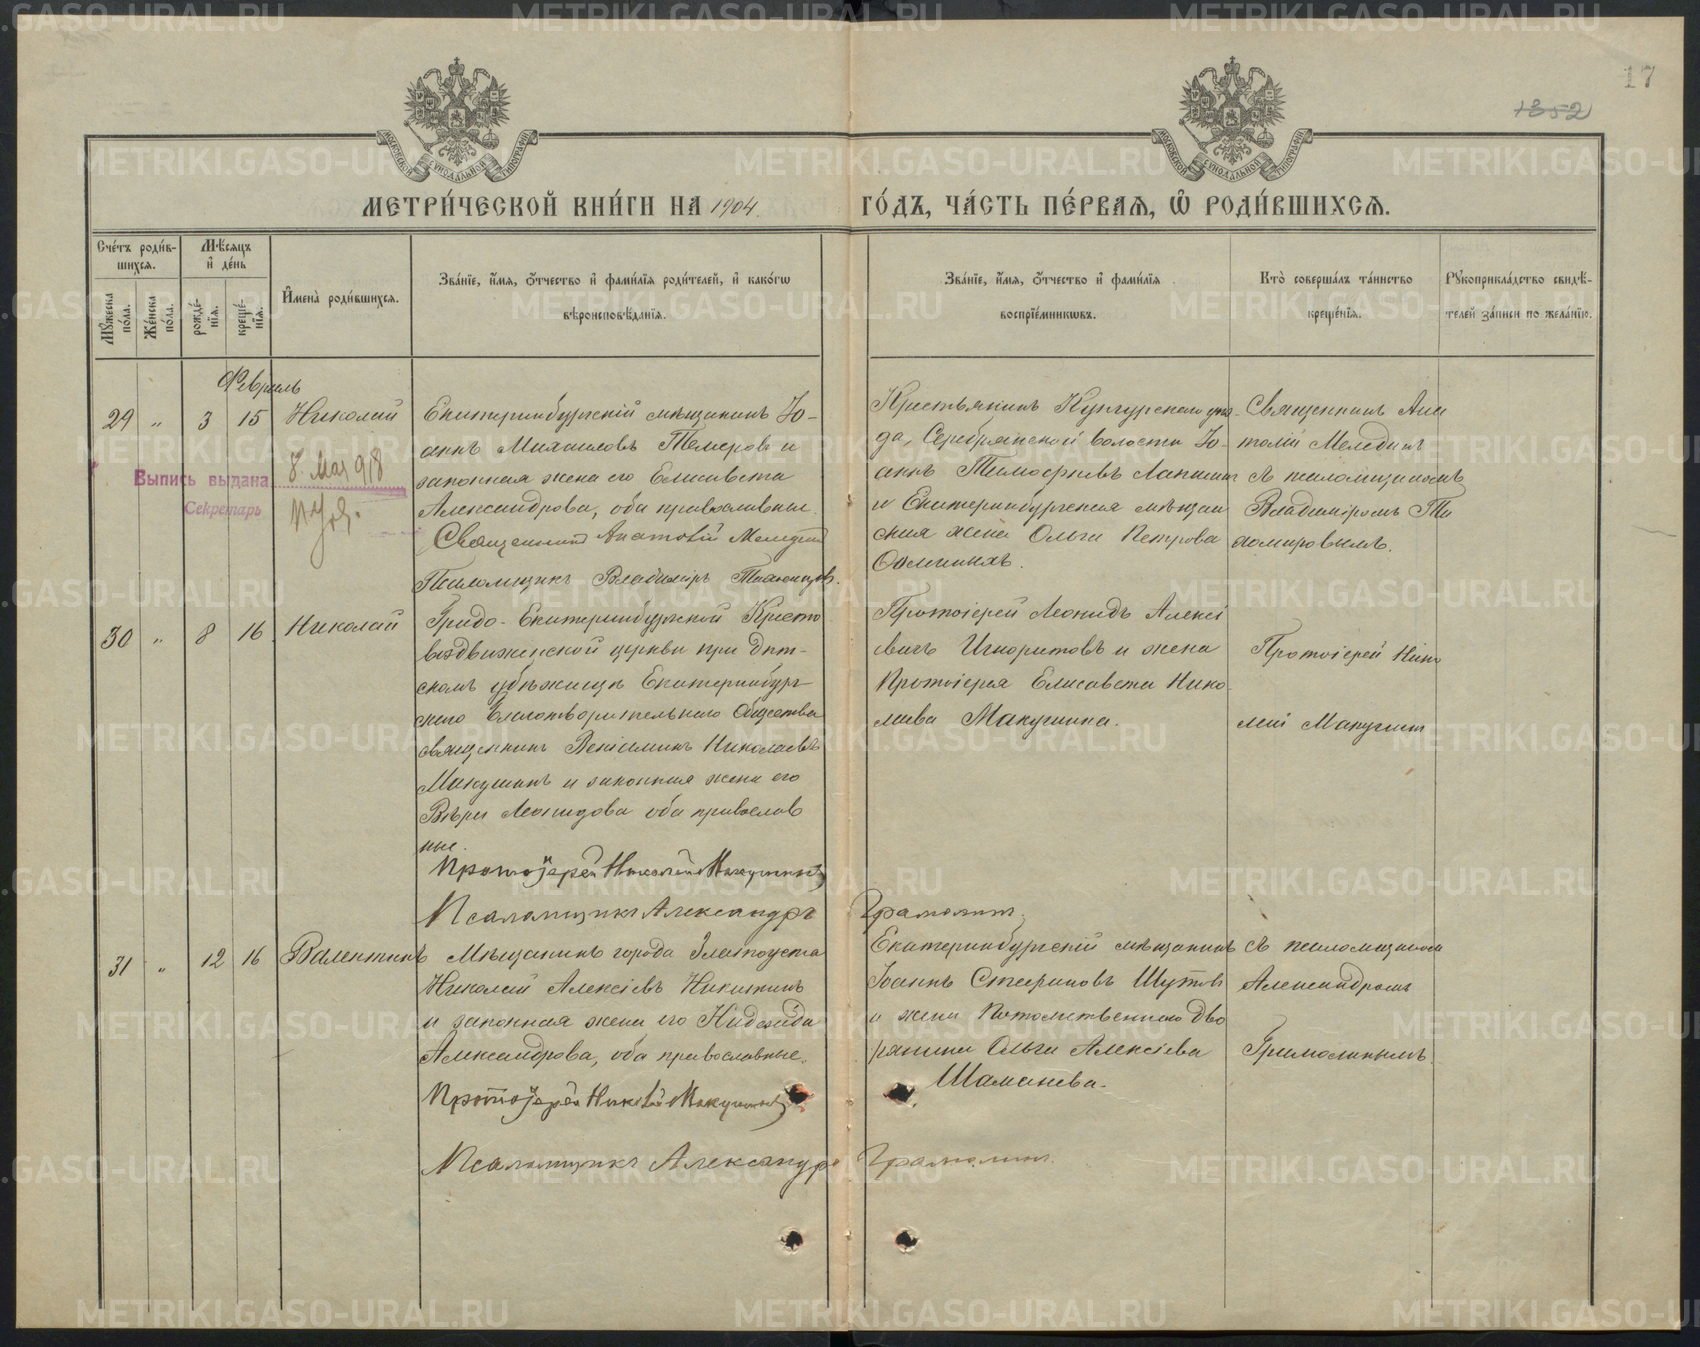 17
1352
МЕТРИ́ЧЕСКОЙ КНИ́ГИ НА 1904
ГО́ДЪ, ЧА́СТЬ ПЕ́РВАѦ, Ѡ РОДИ́ВШИХСѦ.
Сче́тъ роди́в-
шихсѧ.
Мѣ́сѧцъ
и҆ де́нь
Мꙋ́жеска по́ла.
Же́нска по́ла.
рожде́-
нїѧ.
креще́-
нїѧ.
И҆мена̀ роди́вшихсѧ.
Зва́нїе, и҆́мѧ, ѻ҆́тчество и҆ фами́лїѧ роди́телей, и҆ како́гѡ
вѣроисповѣ́данїѧ.
Зва́нїе, и҆́мѧ, ѻ҆́тчество и҆ фами́лїѧ
воспрїе́мникѡвъ.
Кто̀ соверша́лъ та́инство
креще́нїѧ.
Рꙋкоприкла́дство свидѣ́-
телей за́писи по жела́нїю.
Февраль
29 " 3 15 Николай
Екатеринбургскій мѣщанинъ Іо-
аннъ Михаиловъ и
законная жена его Елисавета
Александрова, оба православные.
Священникъ Анатолій
Псаломщикъ Владиміръ Тихомировъ.
Крестьянинъ Кунгурскаго уѣз-
да, Серебрянской волости Іо-
аннъ Тимофеевъ
и Екатеринбургская мѣщан
ская жена Ольга Петрова
Священникъ Ана
толій
съ псаломщикомъ
Владиміромъ Ти
хомировымъ.
Выпись выдана
8. Мая 918
Секретарь
30 " 8 16 Николай
Градо-Екатеринбургской Кресто
воздвиженской церкви при Дѣт-
скомъ убѣжищѣ Екатеринбург-
скаго Благотворительнаго Общества
священникъ Веніаминъ Николаевъ
Макушинъ и законная жена его
Вѣра Леонидова оба православ
ные.
Протоіерей Николай Макушинъ
Псаломщикъ Александръ Грамолинъ.
Протоіерей Леонидъ Алексі
евичъ Игноратовъ и жена
Протоіерея Елисавета Нико-
лаева Макушина.
Протоіерей Нико
лай Макушинъ
31 " 12 16 Валентинъ
Мѣщанинъ города Златоуста
Николай Алексіевъ Никитинъ
и законная жена его Надежда
Александрова, оба православные.
Протоіерей Николай Макушинъ
Псаломщикъ Александръ Грамолинъ.
Екатеринбургскій мѣщанинъ
Іоаннъ Стефановъ Шутовъ
и жена Потомственнаго дво
рянина Ольга Алексіева
Шаманова.
съ псаломщикомъ
Александромъ
Грамолинымъ.
METRIKI.GASO-URAL.RU